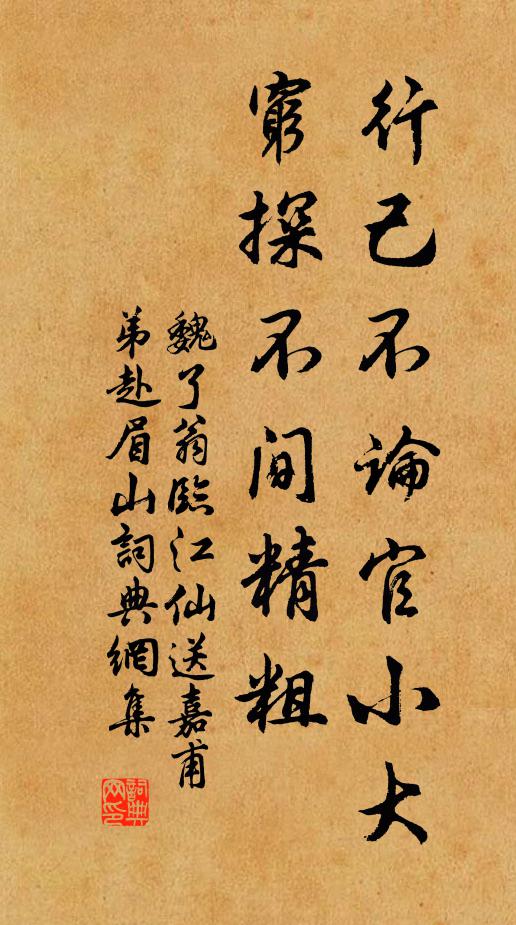 行己不論官小大
窮探不间精粗
魏了翁臨江仙送嘉甫
弟赴眉山詞典網集
詞典
网印